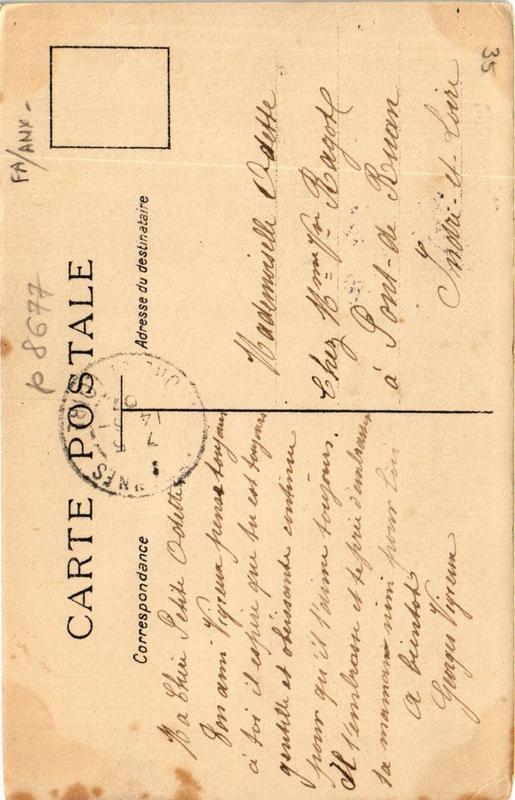 CARTE POSTALE
Correspondance
Adresse du destinataire
Ma Chère Petite Odette
Ton ami Vigreux pense toujours
à toi il espère que tu est toujours
gentille et obéissante continue
pour qu'il t'aime toujours.
Il t'embrasse et te prie d'embrasser
ta maman mimi pour lui
A bientôt
Georges Vigreux
Mademoiselle Odette
Chez Mme Vve Ragot
à Pont-de Ruan
Indre-et-Loire
FA/ANX-
p 8677
35